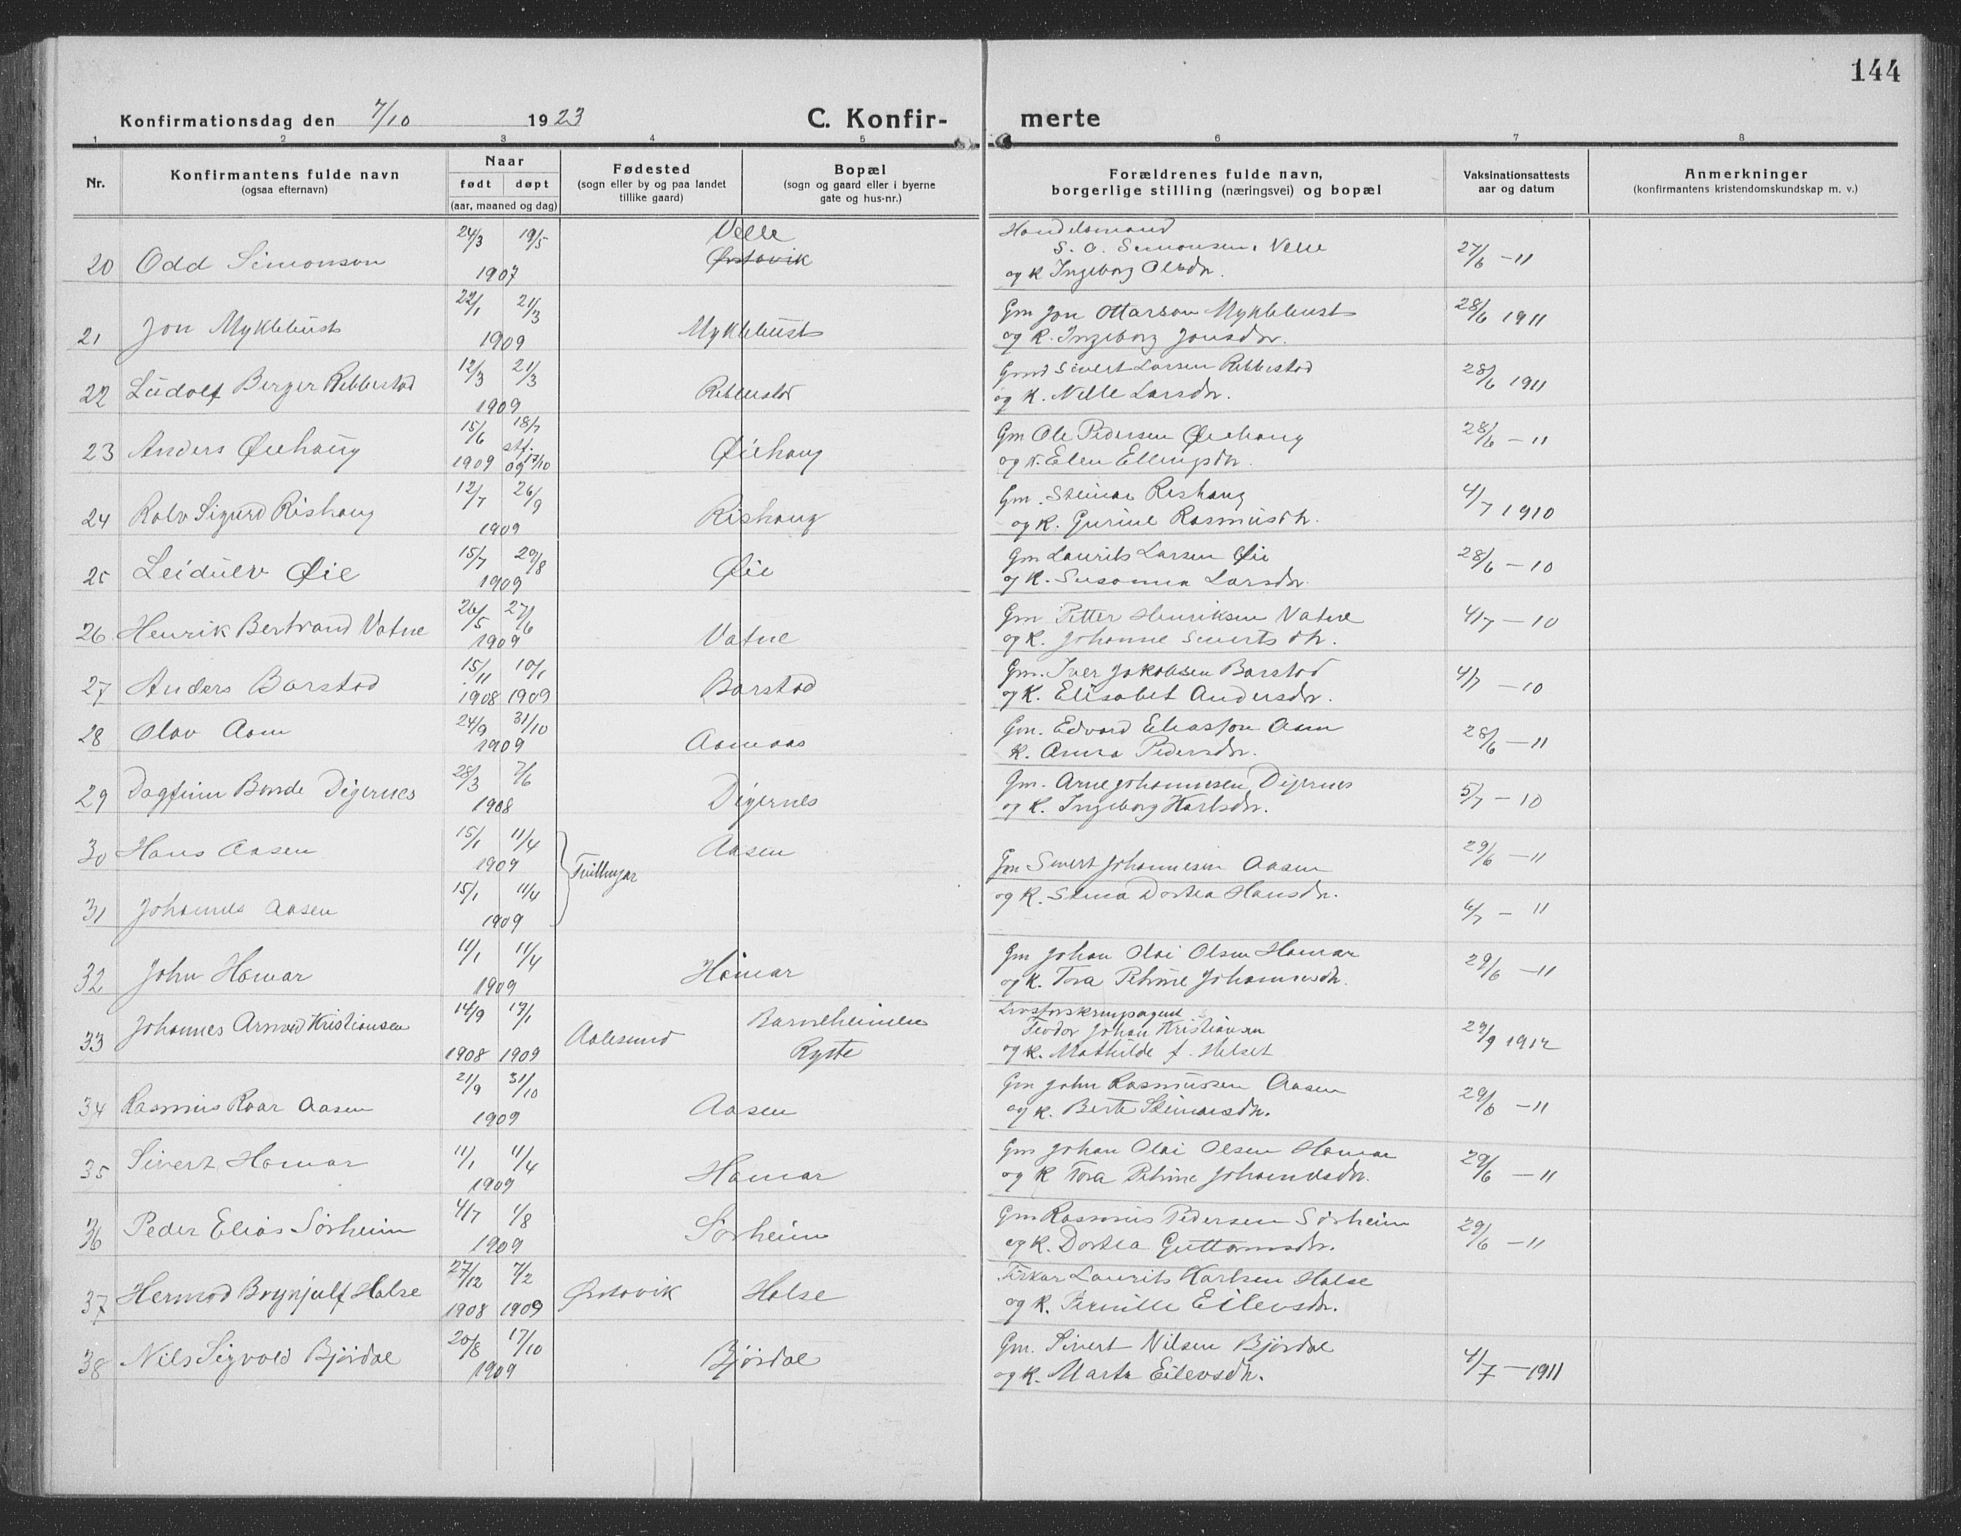 144
Konfirmationsdag den 7/10 1923 C. Konfirmerte
1 2 3 4 5 6 7 8
Nr. Konfirmantens fulde navn (ogsaa efternavn) Naar født døpt (aar, maaned og dag) Fødested (sogn eller by og paa landet tillike gaard) Bopæl (sogn og gaard eller i byerne gate og hus-nr.) Forældrenes fulde navn, borgerlige stilling (næringsvei) og bopæl Vaksinationsattests aar og datum Anmerkninger (konfirmantens kristendomskundskap m. v.)
20 Odd Simonson 24/3 19/5 1907 Velle Ørstavik Handelsmand S. O. Simonsen, Velle og K Ingeborg Olsdr. 27/6 -11
21 Jon Myklebust 22/1 21/3 1909 Myklebust Gm Jon Ottarson Myklebust og K. Ingeborg Jonsdr. 28/6 1911
22 Ludolf Berger Ribbestad 12/3 21/3 1909 Ribbestad Gmd Sivert Larsen Ribbestad og K. Nelle Larsdr. 28/6 1911
23 Anders Øiehaug 15/6 1909 18/7 stf. 17/10 09 Øiehaug Gm Ole Pedersen Øiehaug og K. Elen Ellingsdr. 28/6 -11
24 Rolv Sigurd Rishaug 12/7 26/9 1909 Rishaug Gm. Steinar Rishaug og K. Gurine Rasmusdr. 4/7 1910
25 Leidulv Øie 15/7 29/8 1909 Øie Gm Laurits Larsen Øie og K. Susanna Larsdr. 28/6 -10
26 Henrik Bertrand Vatne 26/5 27/6 1909 Vatne Gm Petter Henriksen Vatne og K. Johanne Sivertsdr. 4/7 -10
27 Anders Barstad 15/11 1908 10/1 1909 Barstad Gm. Iver Jakobsen Barstad og K. Elisabet Andersdr. 4/7 -10
28 Olav Aam 24/9 31/10 1909 Aamaas Gm. Edvard Eliasson Aam K. Anna Pedersdr. 28/6 -11
29 Dagfinn Bonde Digernes 28/3 7/6 1908 Digernes Gm. Arne Johannesen Digernes og K. Ingeborg Karlsdr. 5/7 -10
30 Hans Aasen 15/1 11/4 1909 Tvillingar Aasen Gm Sivert Johannesen Aasen 29/6 -11
31 Johannes Aasen 15/1 11/4 1909 og K. Stina Dortea Hansdr. 4/7 -11
32 John Hamar 11/1 11/4 1909 Hamar Gm Johan Olai Olsen Hamar og K. Tora Petrine Johannesdr. 29/6 -11
33 Johannes Arnved Kristiansen 14/9 1908 17/1 1909 Aalesund Barneheimen Ryste Livsforsikringsagent Teodor Johan Kristiansen og K. Mathilde f. Helset 29/9 1912
34 Rasmus Roar Aasen 21/9 31/10 1909 Aasen Gm John Rasmussen Aasen og K. Berte Steinarsdr. 29/6 -11
35 Sivert Hamar 11/1 11/4 1909 Hamar Gm Johan Olai Olsen Hamar og K Tora Petrine Johannesdr. 29/6 -11
36 Peder Elias Sørheim 4/7 1/8 1909 Sørheim Gm Rasmus Pedersen Sørheim og K. Dortea Guttormsdr. 29/6 -11
37 Hermod Brynjulf Halse 27/12 1908 7/2 1909 Ørstavik Halse Laurits Karlsen Halse og K. Pernille Eilevsdr.
38 Nils Sigvald Bjørdal 20/8 17/10 1909 Bjørdal Gm. Sivert Nilsen Bjørdal og K. Marta Eilevsdr. 4/7 -1911